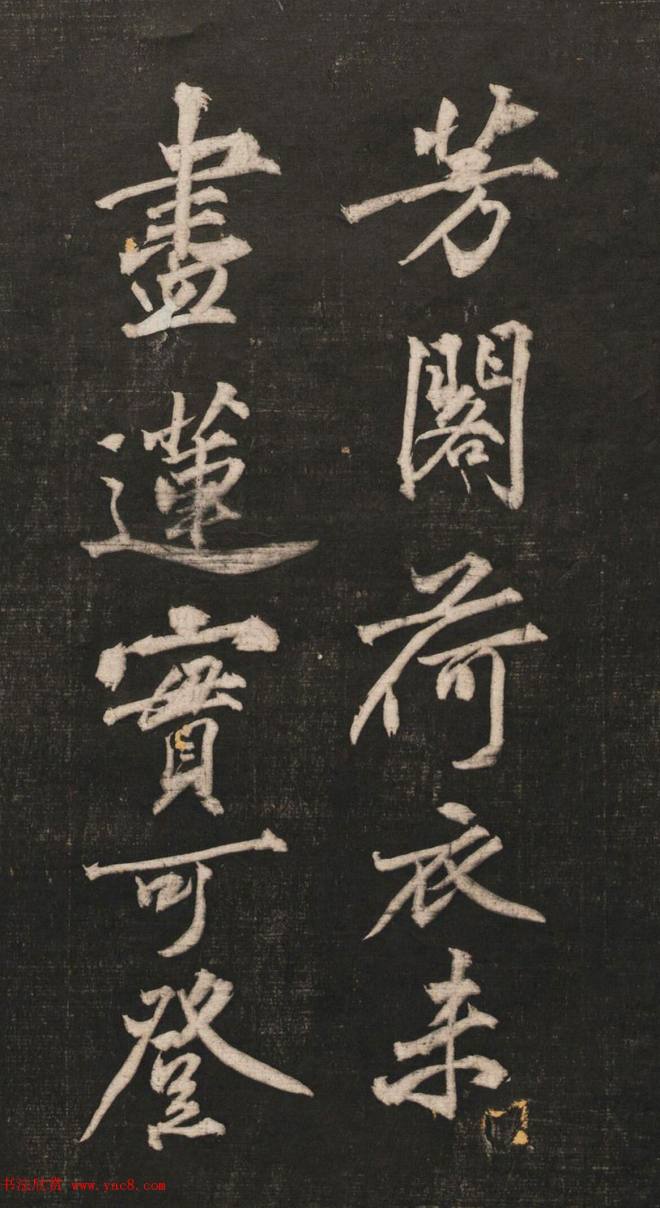 芳閣荷衣未
盡蓮實可登
书法欣赏 www.ync8.com